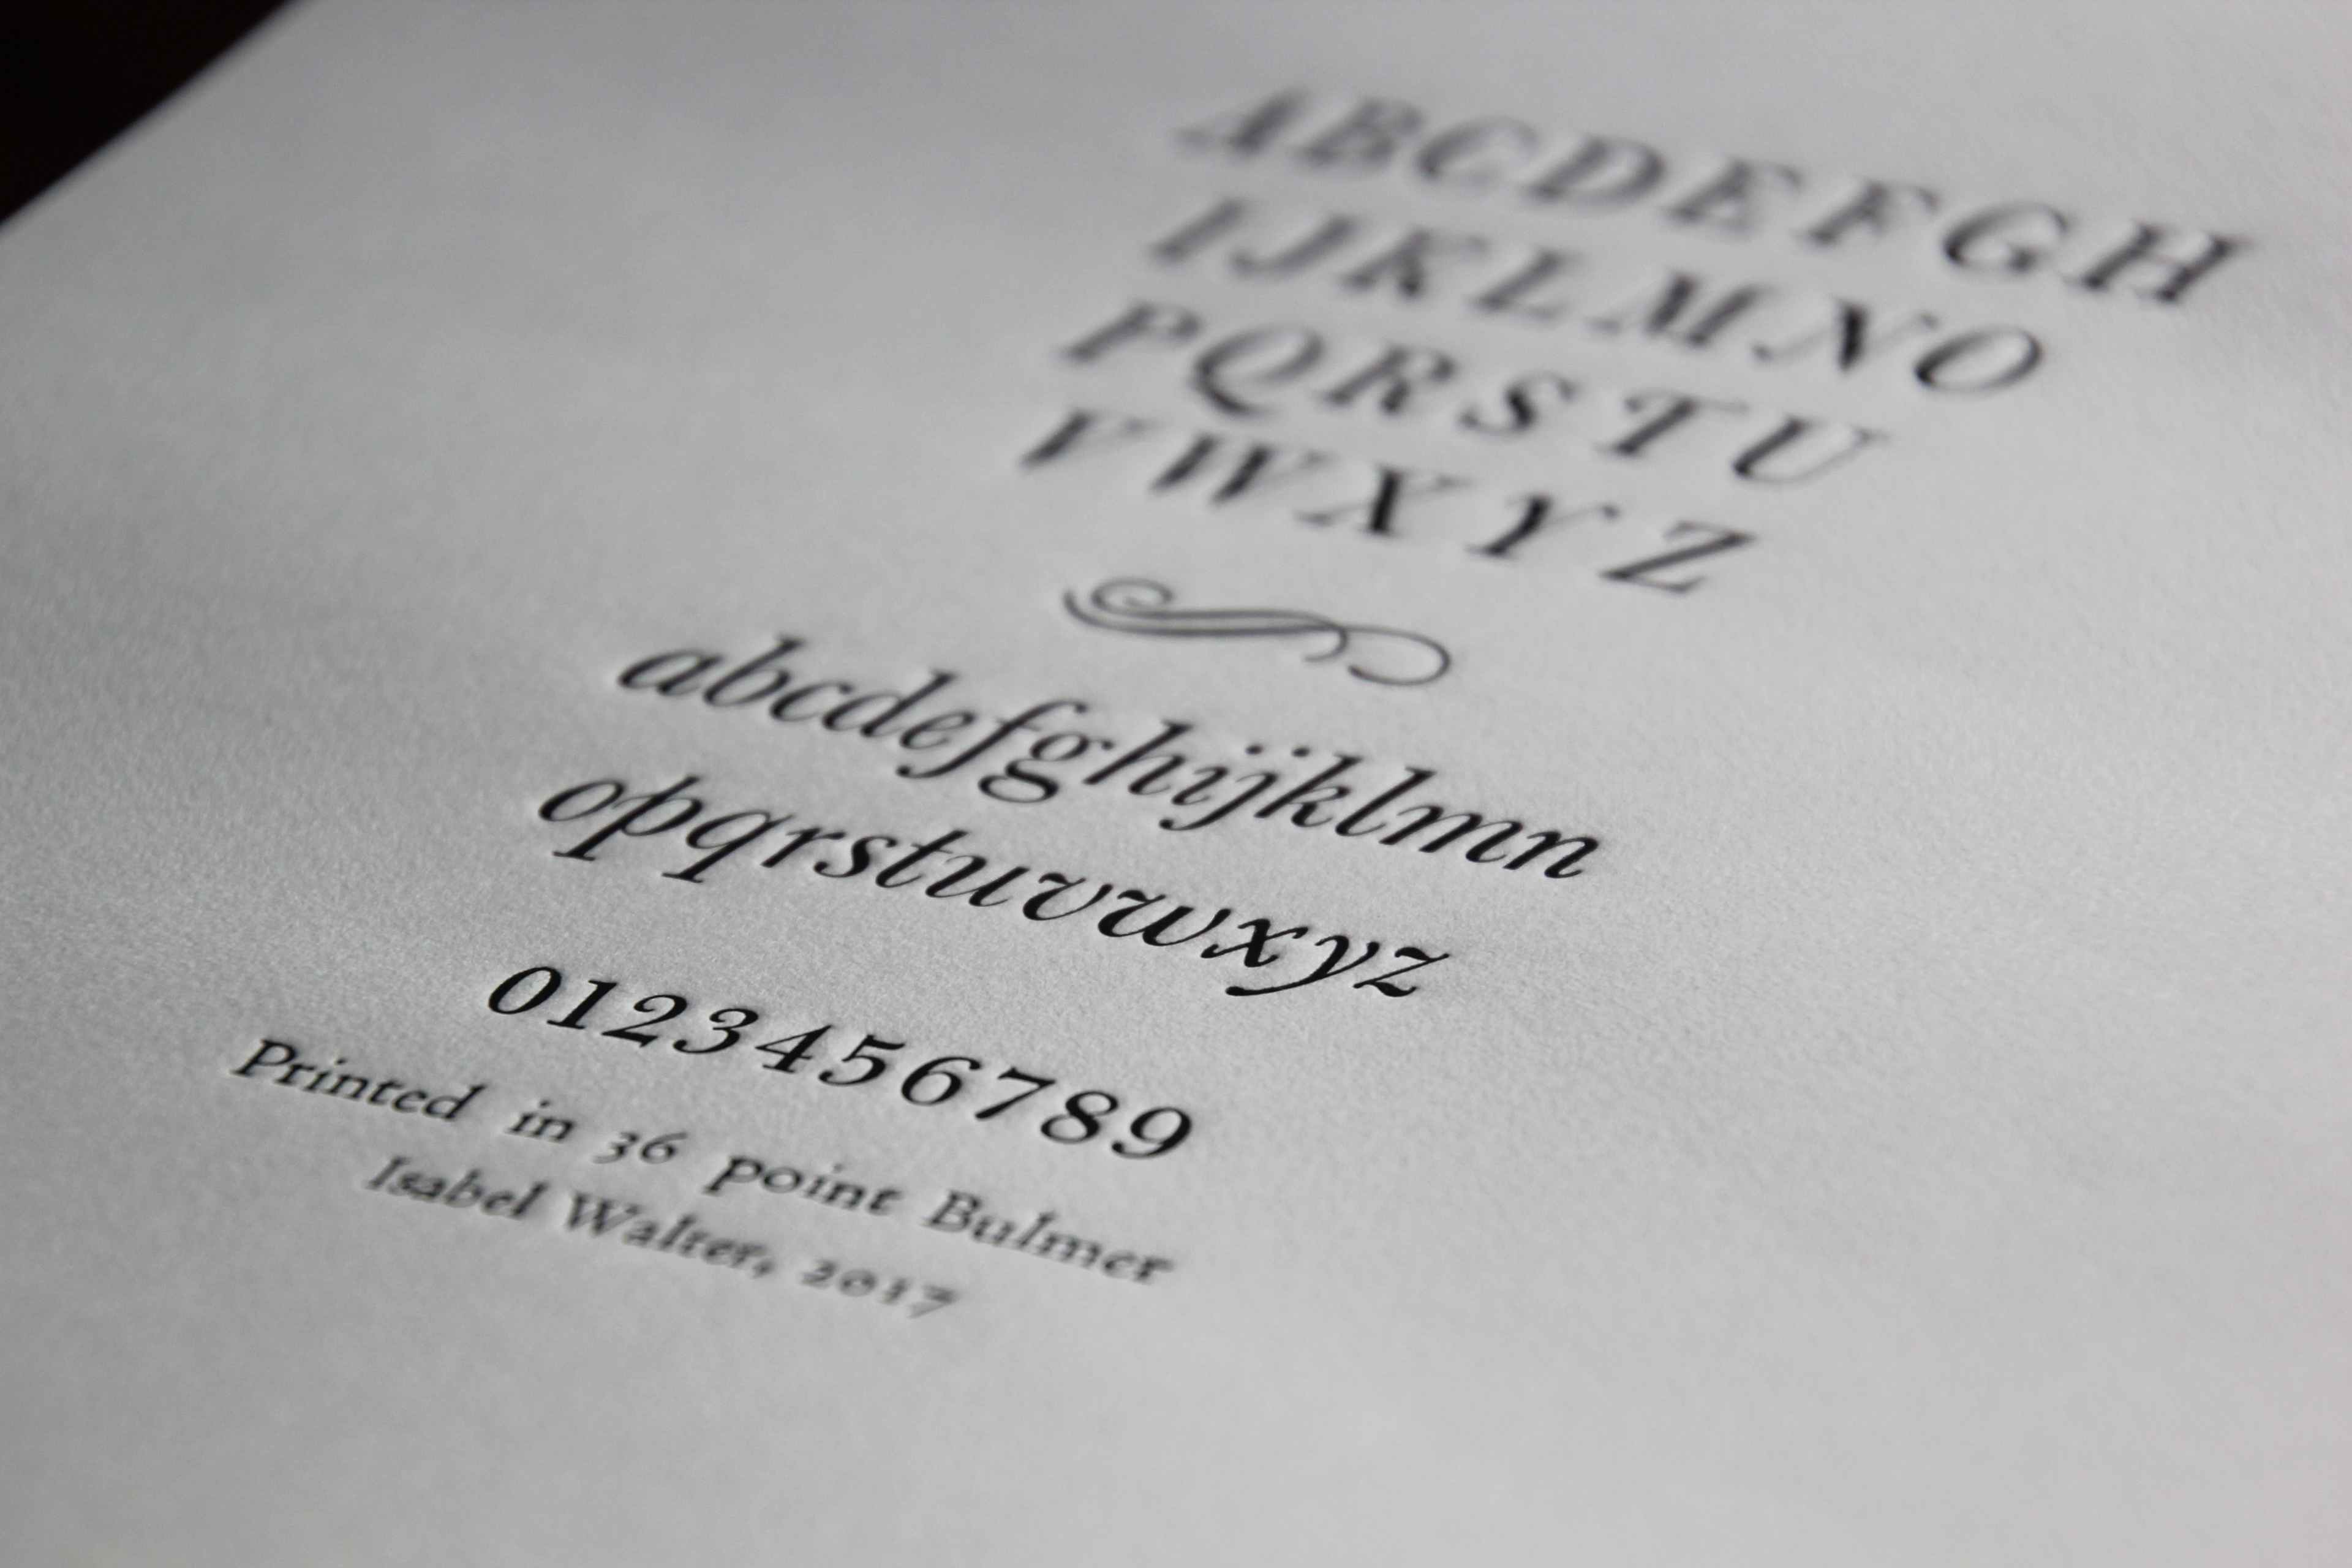 ABCDEFGH
IJKLMNO
PQRSTU
VWXYZ
abcdefghijklmn
opqrstuvwxyz
0123456789
Printed in 36 point Bulmer
Isabel Walter, 2017